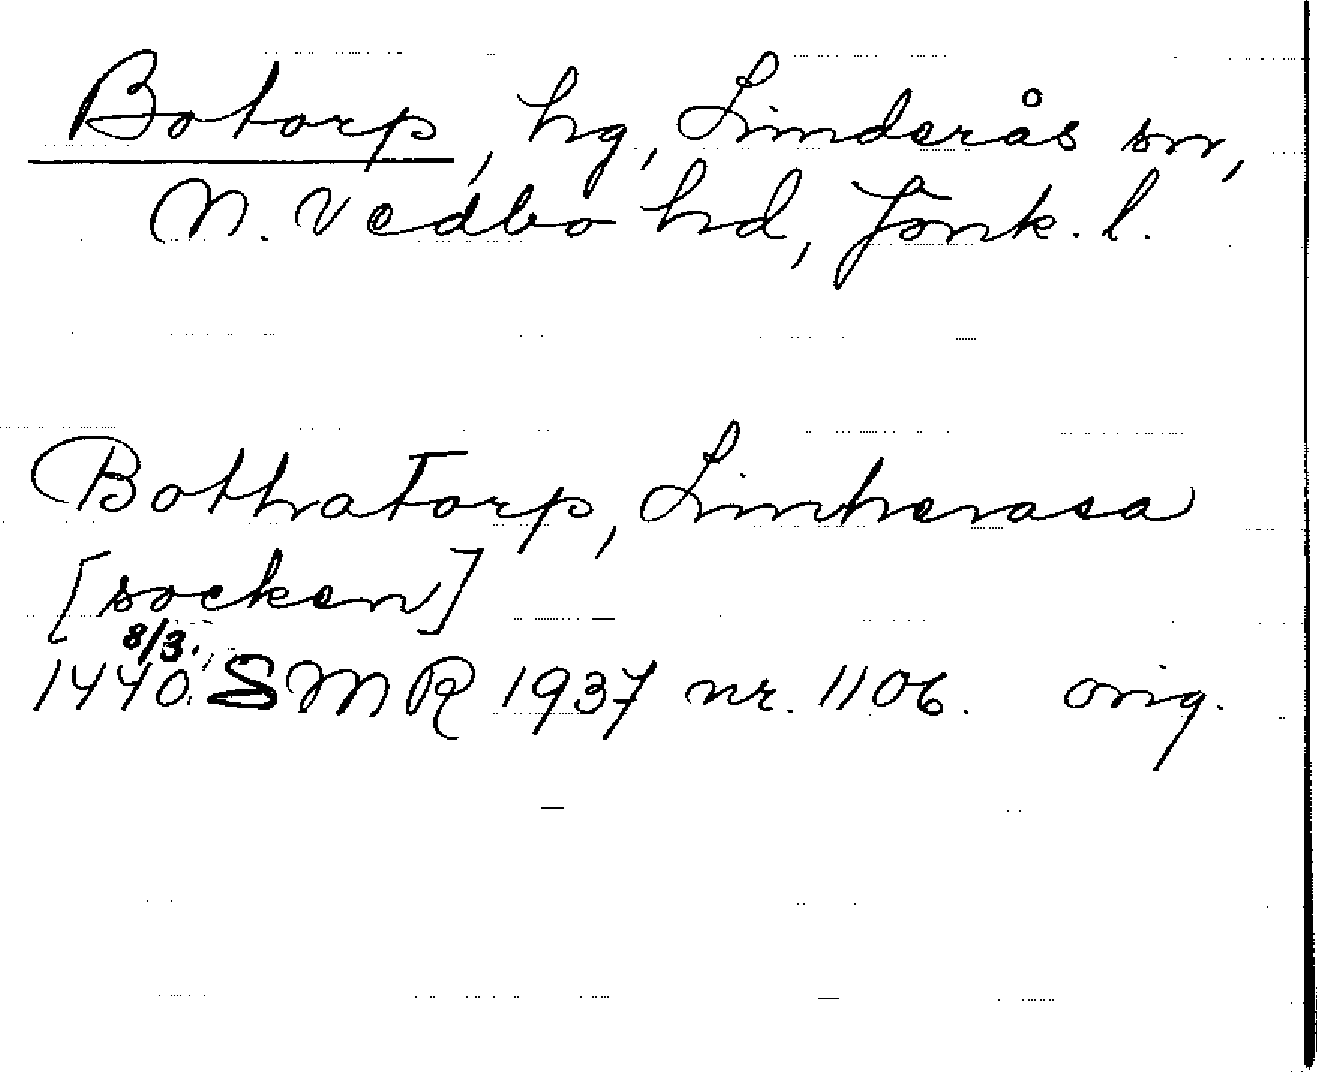 Botorp, hg, Linderås sn,
N. Vedbo hd, Jönk. l.
Bothatorp, Limherasa
[socken]
1440 8/3. SMR 1937 nr. 1106. orig.